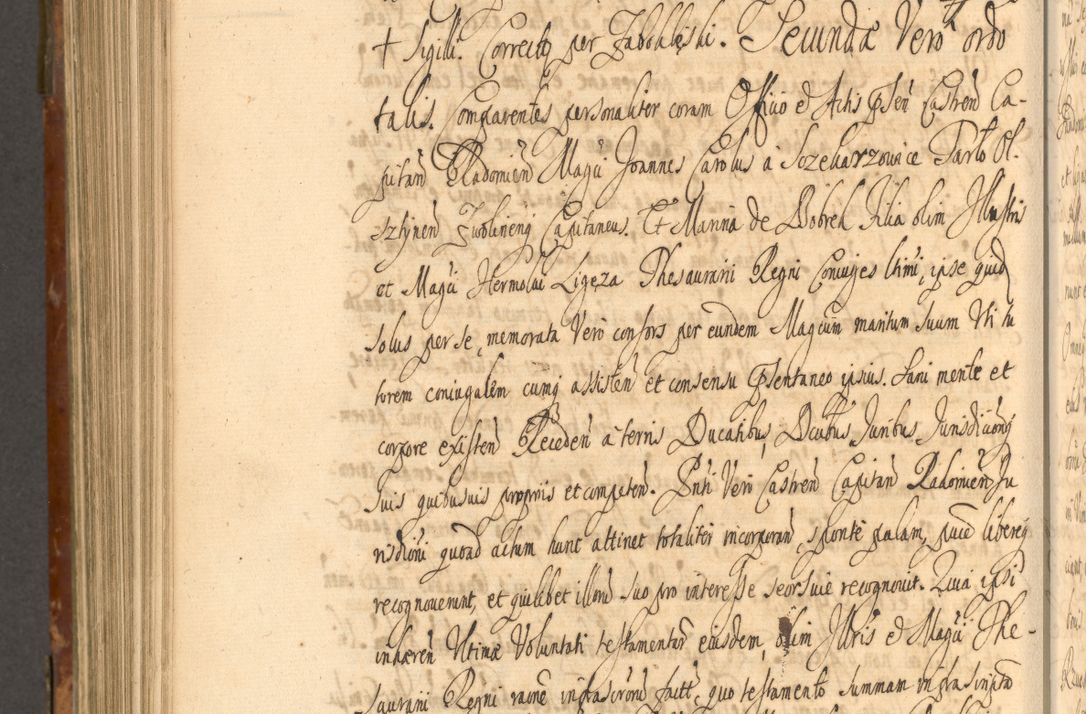 + Sigill. Correcta per Jabohlęski. Secunda Vero ordo
talis. Comparentes personaliter coram Officio et Actis psen Castren Ca-
pitan Radomien Magci Joannes Carolus a Sczekarzowice Tarło Ol.
sztynen Zwolinens Capitaneus. Et Marina de Bobrek Filia olim Illustris
et Magci Hermolai Ligęza Thesaurarii Regni Coniuges lthimi, ipse quid
solus per se, memorata Vero consors per eundem Magcum maritum suum Vti tu
torem coniugalem cumq assisten et consensu psentaneo ipsius. Sani mente et
corpore existen Receden a terris Ducatibus, Dcibus Juribus Jurisdicionq
suis quibusuis propriis et competen. Pnti Vero Castren Capitan Radomien Ju
risdioni quoad actum hunc attinet totaliter incorporan, sponte palam, puce libereq
recognouerunt, et quilibet illorum suo pro interesse seorsiue recognouit. Quia ipsi
inhaeren Vltimae Voluntati testamentar eiusdem, olim Illris et Magci The-
saurarii Regni raone infrascriore factt, quo testamento summam infrascriptã